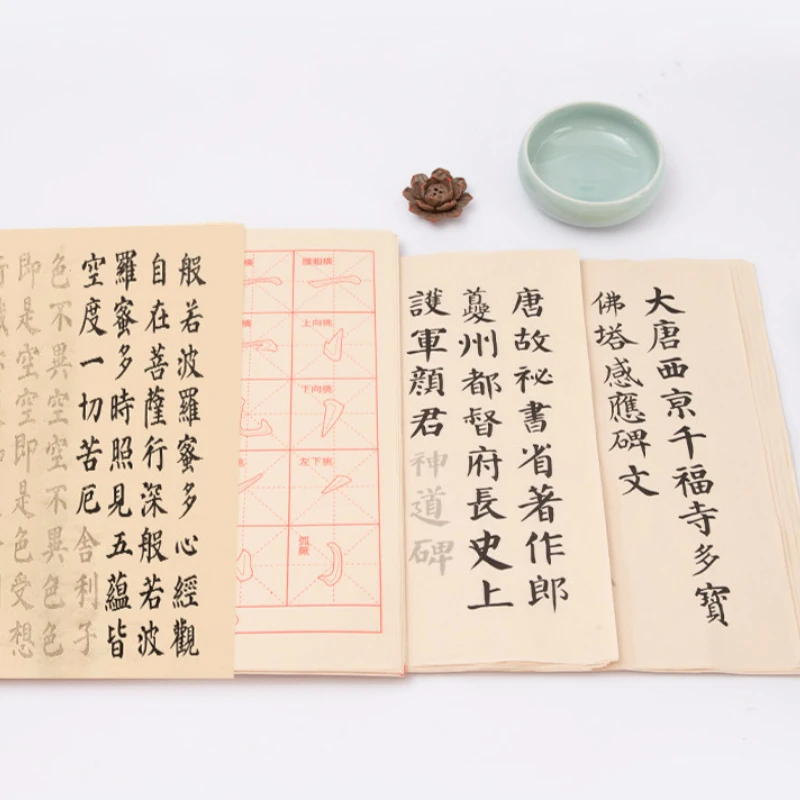 般若波羅蜜多心經觀
自在菩薩行深般若波
羅蜜多時照見五蘊皆
空度一切苦厄舍利子
色不異空空不異色色
即是空空即是色受想
腰粗橫
上向挑
下向挑
左下挑
唐故祕書省著作郎
夔州都督府長史上
護軍顏君神道碑
大唐西京千福寺多寶
佛塔感應碑文